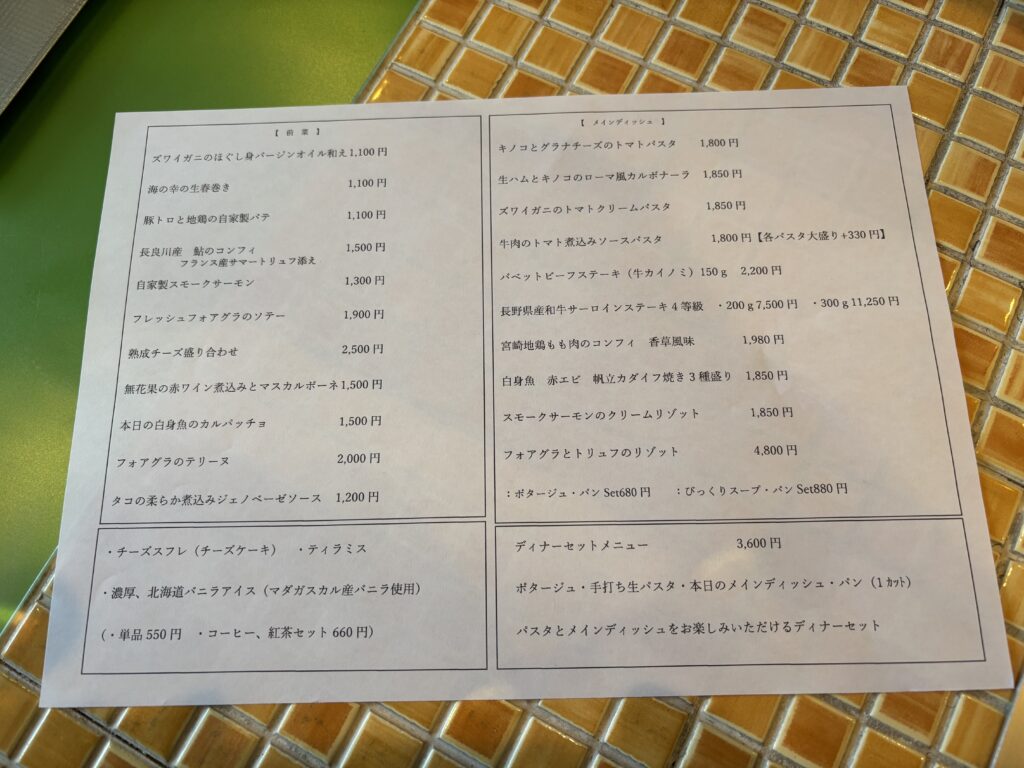 【 前 菜 】
ズワイガニのほぐし身バージンオイル和え1,100円
海の幸の生春巻き 1,100円
豚トロと地鶏の自家製パテ 1,100円
長良川産 鮎のコンフィ 1,500円
フランス産サマートリュフ添え
自家製スモークサーモン 1,300円
フレッシュフォアグラのソテー 1,900円
熟成チーズ盛り合わせ 2,500円
無花果の赤ワイン煮込みとマスカルポーネ1,500円
本日の白身魚のカルパッチョ 1,500円
フォアグラのテリーヌ 2,000円
タコの柔らか煮込みジェノベーゼソース 1,200円
・チーズスフレ（チーズケーキ） ・ティラミス
・濃厚、北海道バニラアイス（マダガスカル産バニラ使用）
（・単品550円 ・コーヒー、紅茶セット660円）
【 メインディッシュ 】
キノコとグラナチーズのトマトパスタ 1,800円
生ハムとキノコのローマ風カルボナーラ 1,850円
ズワイガニのトマトクリームパスタ 1,850円
牛肉のトマト煮込みソースパスタ 1,800円【各パスタ大盛り+330円】
バベットビーフステーキ（牛カイノミ）150g 2,200円
長野県産和牛サーロインステーキ4等級 ・200g7,500円 ・300g11,250円
宮崎地鶏もも肉のコンフィ 香草風味 1,980円
白身魚 赤エビ 帆立カダイフ焼き3種盛り 1,850円
スモークサーモンのクリームリゾット 1,850円
フォアグラとトリュフのリゾット 4,800円
：ポタージュ・パンSet680円 ：びっくりスープ・パンSet880円
ディナーセットメニュー 3,600円
ポタージュ・手打ち生パスタ・本日のメインディッシュ・パン（1ｶｯﾄ）
パスタとメインディッシュをお楽しみいただけるディナーセット